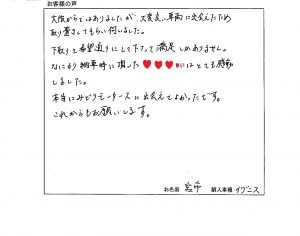 お客様の声
大阪からではありましたが、大変良い車両に出会えたため
取り置きしてもらい伺いました。
下取りも希望通りにして下さって満足しかありません。
なにより納車時に頂いた♥♥♥にはとても感動
しました。
本当にみどりモータースに出会えてよかったです。
これからもお願いします。
お名前
購入車種 イグニス